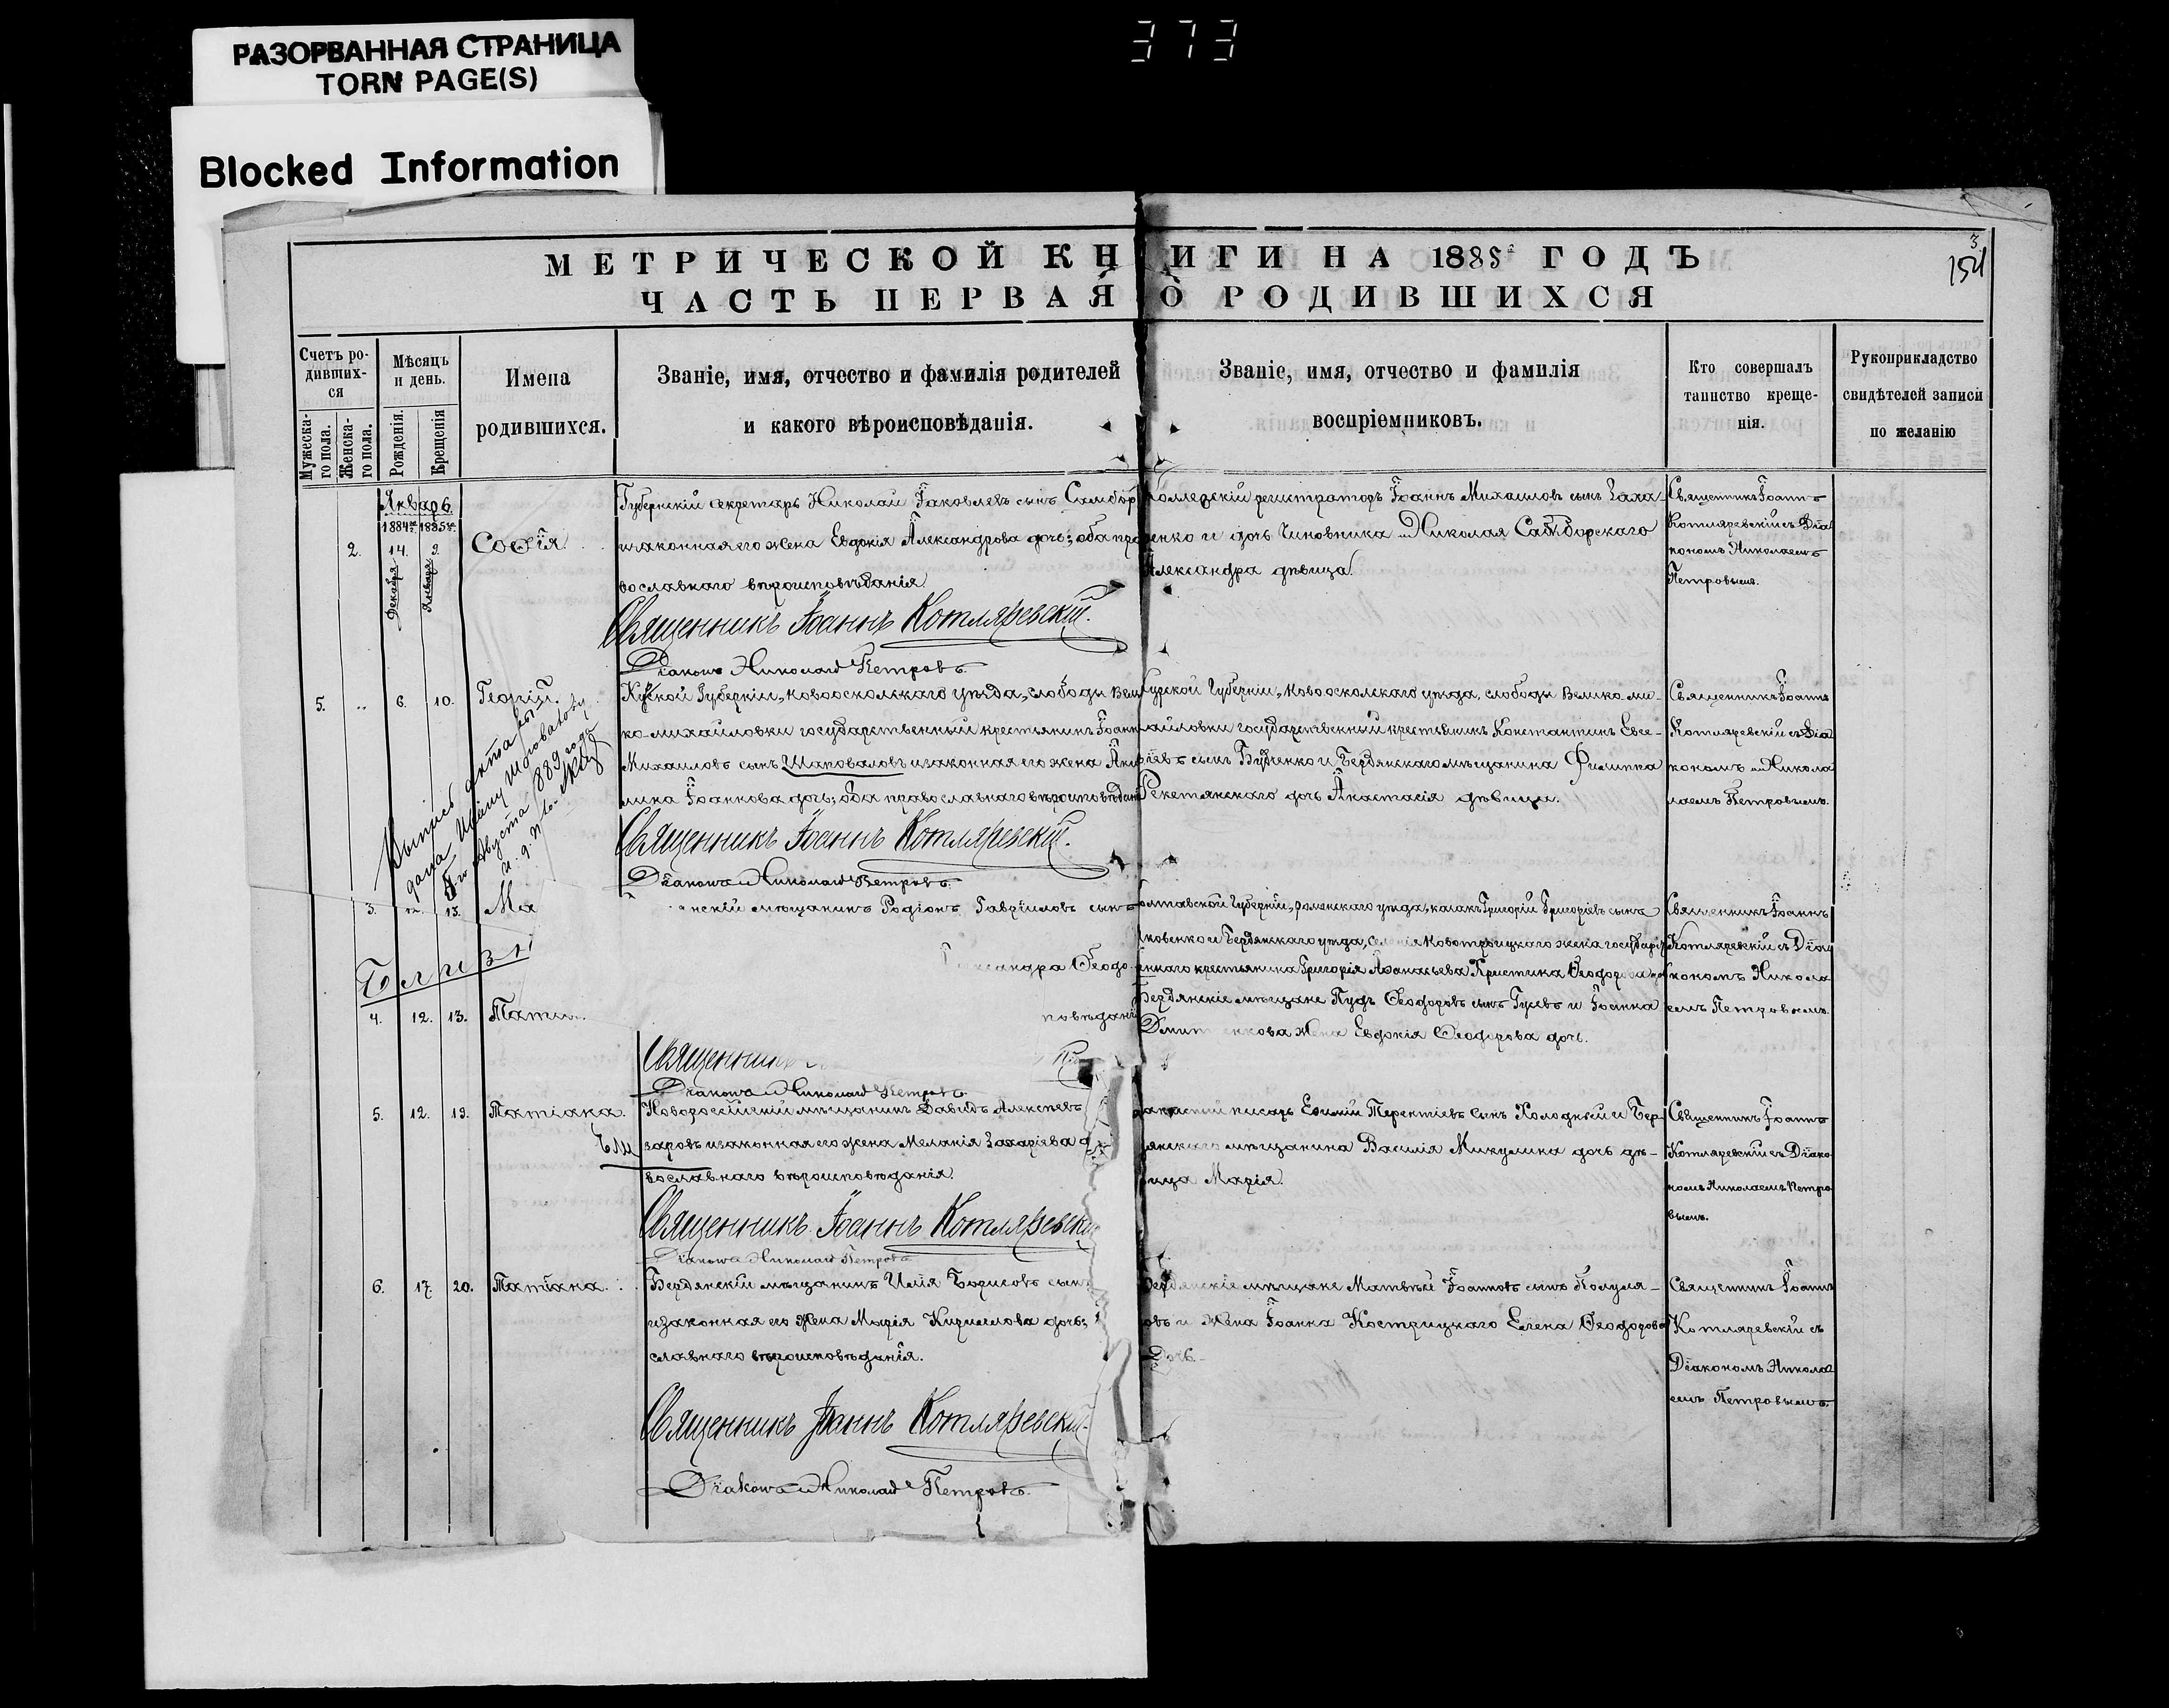 373
РАЗОРВАННАЯ СТРАНИЦА
TORN PAGE(S)
Blocked Information
МЕТРИЧЕСКОЙ КНИГИ НА 1885 ГОДЪ
3.
154
ЧАСТЬ ПЕРВАЯ О РОДИВШИХСЯ
Счетъ ро-
дивших-
ся
Мужеска-
го пола.
Женска-
го пола.
Мѣсяцъ
и день.
Рожденія.
Крещенія
Имена
родившихся.
Званіе, имя, отчество и фамилія родителей
и какого вѣроисповѣданія.
Званіе, имя, отчество и фамилія
воспріемниковъ.
Кто совершалъ
таинство креще-
нія.
Рукоприкладство
свидѣтелей записи
по желанію
Январь
1884 1885
2. 14. 9. Софія.
Декабря Января
Губернскій секретарь Николай Іаковлевъ сынъ Самбор
и законная его жена Евдокія Александрова дочь; оба пра
вославнаго вѣроисповѣданія
Священникъ Іоаннъ Котляревскій.
Діаконъ Николай Петровъ
Коллежскій регистраторъ Іоаннъ Михаиловъ сынъ Заха-
ренко и дочь Чиновника Николая Самборскаго
Александра дѣвица.
Священникъ Іоаннъ
Котляревскій съ Діа
кономъ Николаемъ
Петровымъ.
5. „ 6. 10. Георгій.
Выпись
дана Шаповалову
Августа 1889 года
Курской Губерніи, Новооскольскаго уѣзда, слободы Вели
ко-михайловки государственный крестьянинъ Іоаннъ
Михаиловъ сынъ Шаповаловъ и законная его жена
Іоаннова дочь; оба православнаго вѣроисповѣданія
Священникъ Іоаннъ Котляревскій.
Діаконъ Николай Петровъ
Курской Губерніи, Новооскольскаго уѣзда, слободы Велико-ми-
хайловки государственный крестьянинъ Константинъ Евсе-
віевъ сынъ Бутенко и Бердянскаго мѣщанина Филиппа
дочь Анастасія дѣвица.
Священникъ Іоаннъ
Котляревскій съ Діа
кономъ Никола
аемъ Петровымъ.
3. 13. Ма
нскій мѣщанинъ Родіонъ Гавріиловъ сынъ
сандра Ѳеодо
Близн
4. 12. 13. Тати
повѣдан
Священникъ
Діаконъ Николай Петровъ
Полтавской Губерніи, роменскаго уѣзда, казакъ Григорій Григоріевъ сынъ
Яковенко и Бердянскаго уѣзда, селенія Новотроицкаго жена государст
веннаго крестьянина Григорія Аѳанасьева Христина Ѳеодорова
Бердянскіе мѣщане Пудъ Ѳеодоровъ сынъ Гусевъ и Іоанна
Дмит енкова жена Евдокія Ѳеодорова дочь.
Священникъ Іоаннъ
Котляревскій съ Діак
кономъ Никола
емъ Петровымъ.
5. 12. 13. Татіана.
Новороссійскій мѣщанинъ Давидъ Алексѣевъ
Ели
заровъ и законная его жена Меланія Захаріева
вославнаго вѣроисповѣданія.
Священникъ Іоаннъ Котляревскій
Діаконъ Николай Петровъ
писарь Евѳимій Терентіевъ сынъ Холодный и Бер-
дянскаго мѣщанина Василія Микулина дочь дѣ-
вица Марія.
Священникъ Іоаннъ
Котляревскій съ Діако-
номъ Николаемъ Петро
вымъ.
6. 17. 20. Татіана.
Бердянскій мѣщанинъ Илія Борисовъ сынъ
и законная его жена Марія Кириллова дочь;
славнаго вѣроисповѣданія.
Священникъ Іоаннъ Котляревскій
Діаконъ Николай Петровъ
Бердянскіе мѣщане Матвѣй Іоанновъ сынъ
овъ и жена Іоанна Кострицкаго Елена Ѳеодорова
Дочь
Священникъ Іоаннъ
Котляревскій съ
Діакономъ Никола
емъ Петровымъ.